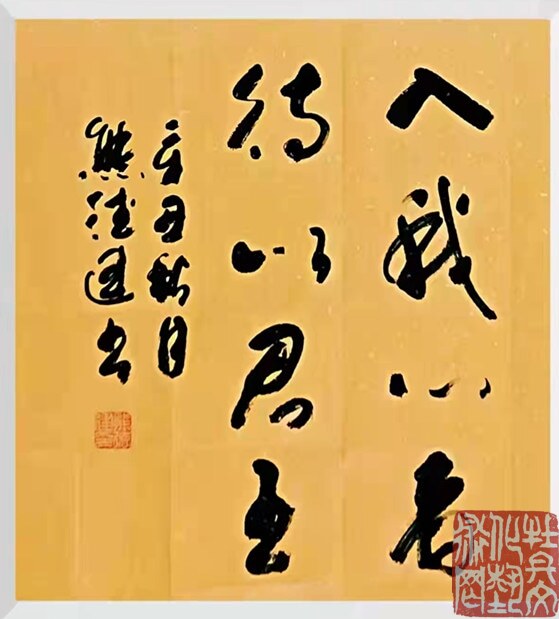 入我心者
待以君王
辛丑秋月
熊德书